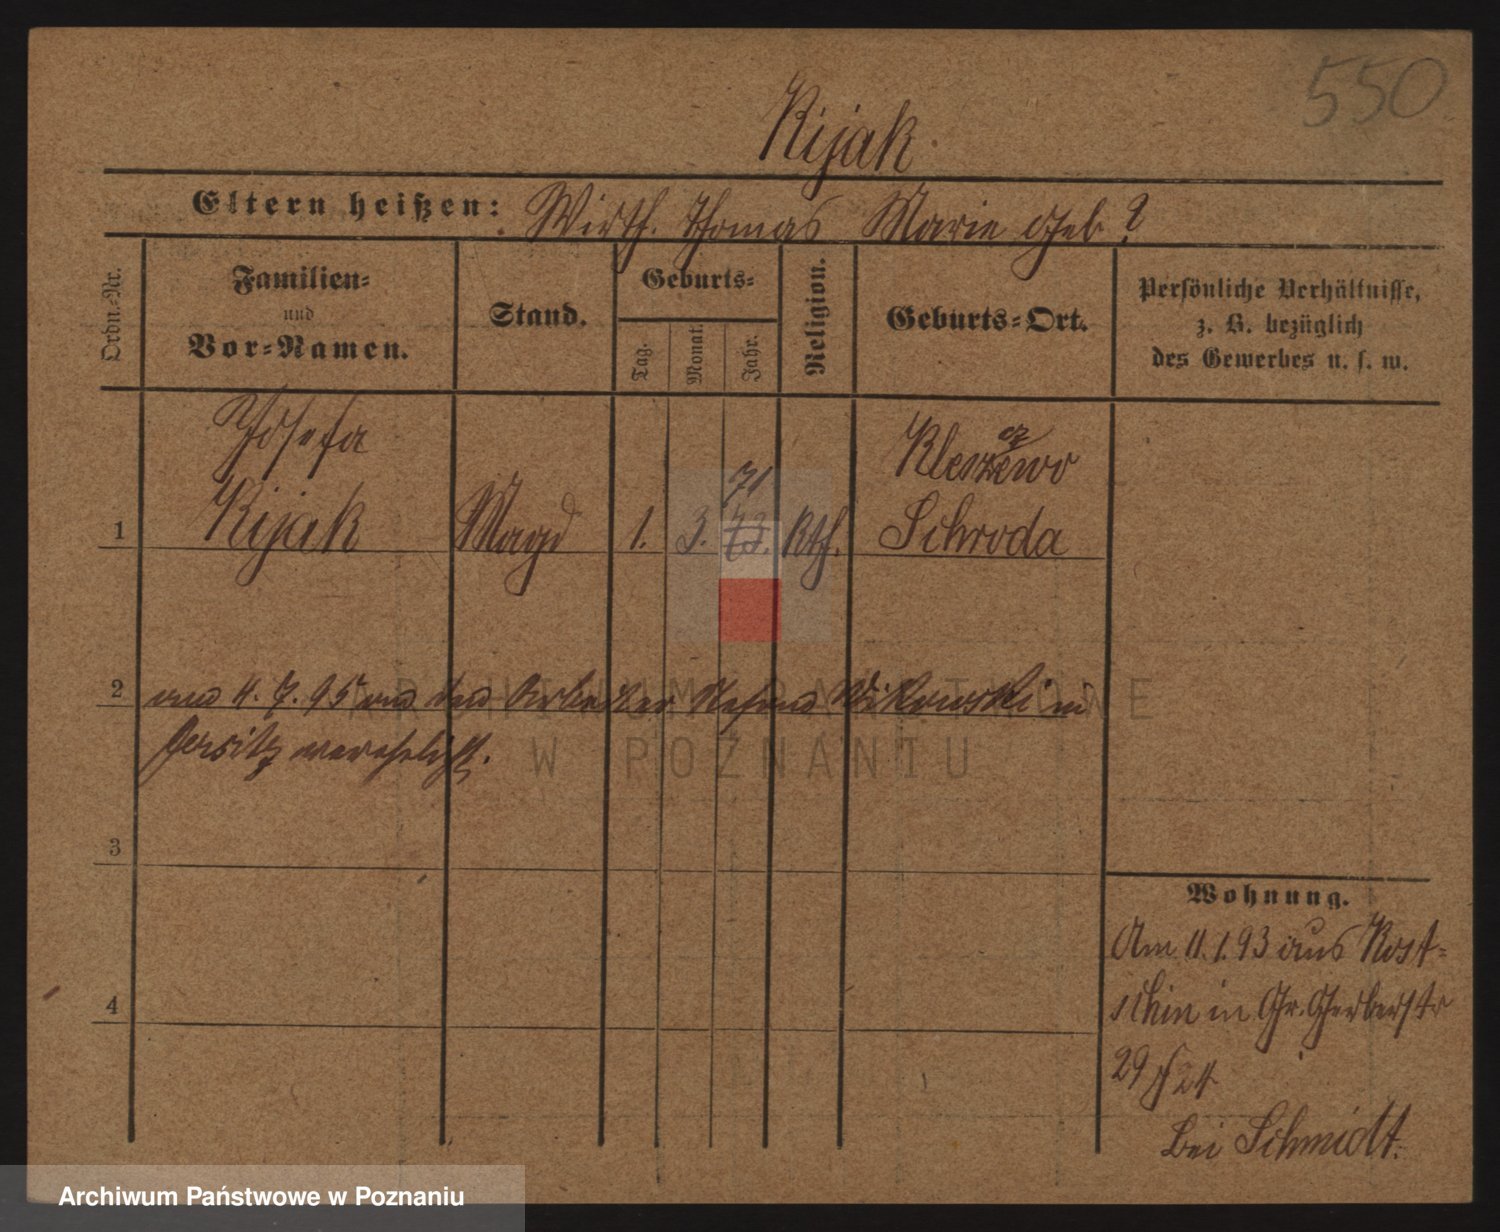 550
Kijak.
Eltern heißen: Wirth. Thomas Marie geb. ?
Ordn.-Nr.
Familien-
und
Vor-Namen.
Stand.
Geburts-
Tag.
Monat.
Jahr.
Religion.
Geburts-Ort.
Persönliche Verhältnisse,
z. B. bezüglich
des Gewerbes u. s. w.
Josefa
Kijak
1
Magd
1.
3.
71
73.
Kth.
cz
Kleszewo
Schroda
2
4. 7. 95 Arbeiter Wikowski in
Jersitz verehelicht.
3
4
Wohnung.
Am 11.1.93 aus Kost-
schin in Gr. Gerberstr
29
bei Schmidt.
ARCHIWUM PAŃSTWOWE
W POZNANIU
Archiwum Państwowe w Poznaniu